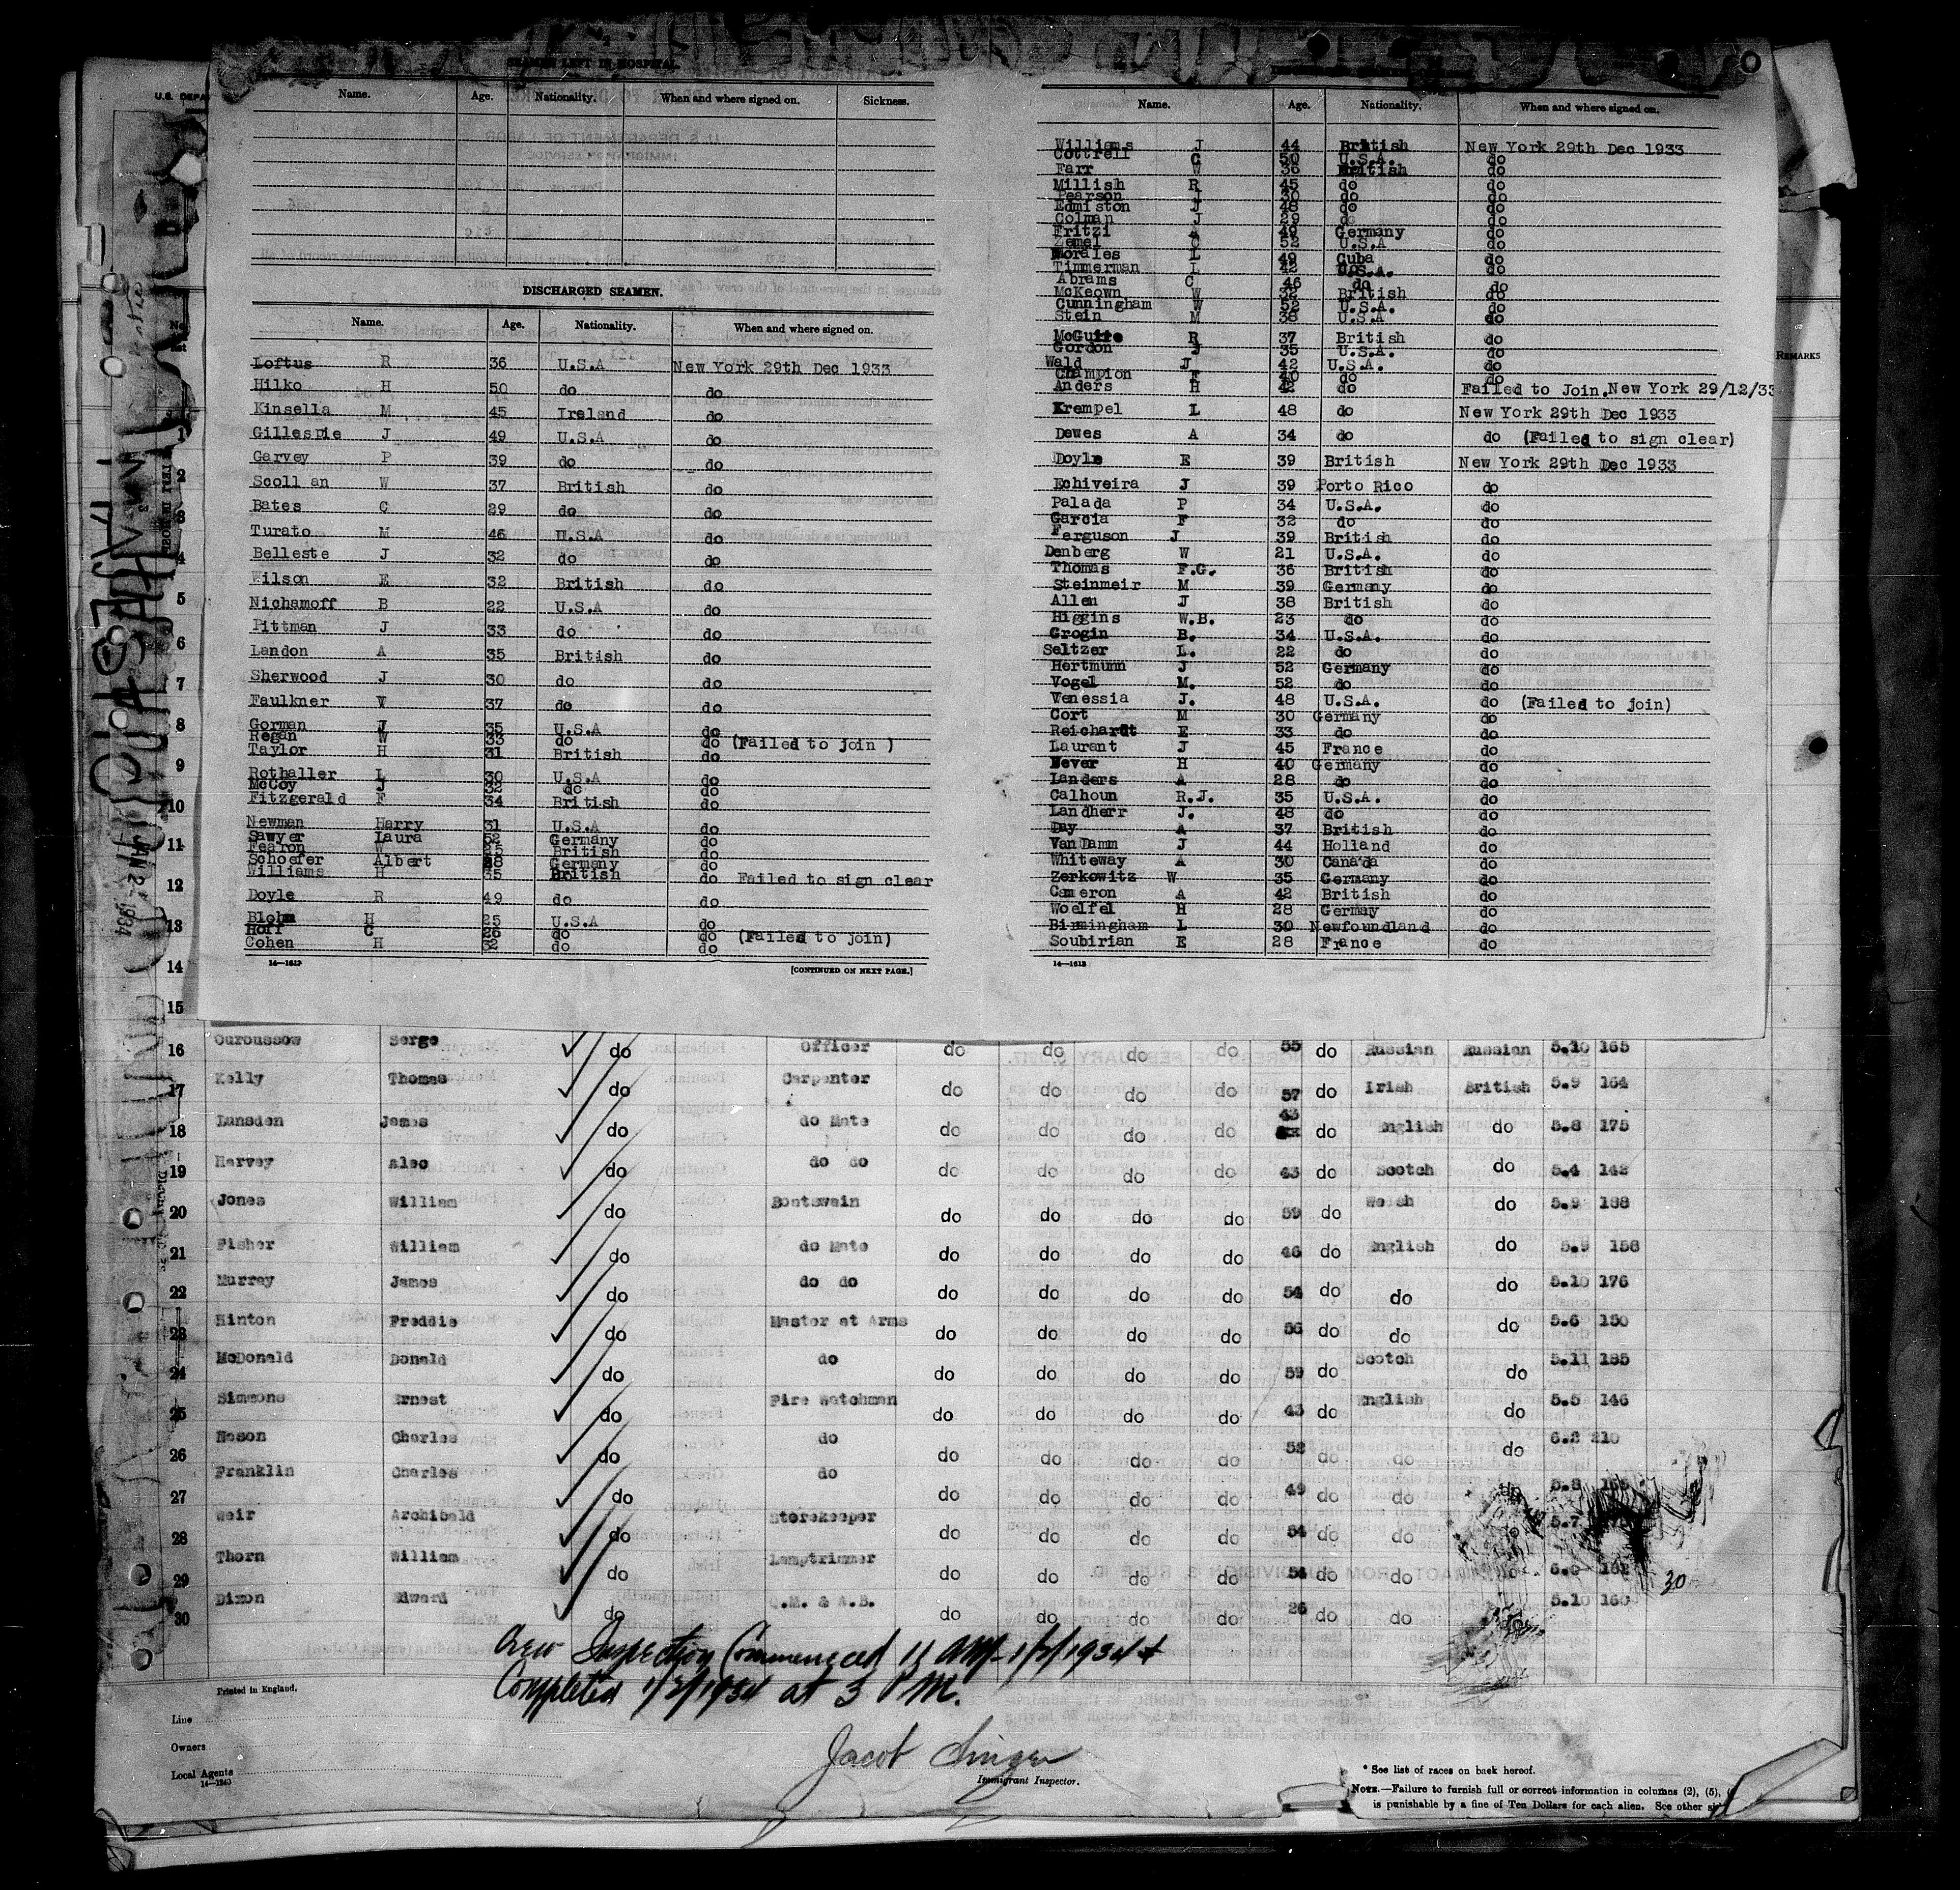 SEAMEN LEFT IN HOSPITAL.
Name. Age. Nationality. When and where signed on. Sickness.
DISCHARGED SEAMEN.
Name. Age. Nationality. When and where signed on.
Loftus R 36 U.S.A New York 29th Dec 1933
Hilko H 50 do do
Kinsella M 45 Ireland do
Gillespie J 49 U.S.A do
Garvey P 39 do do
Scollan W 37 British do
Bates C 29 do do
Turato M 46 U.S.A do
Belleste J 32 do do
Wilson E 32 British do
Nichamoff B 22 U.S.A do
Pittman J 33 do do
Landon A 35 British do
Sherwood J 30 do do
Faulkner W 37 do do
Gorman J 35 U.S.A do
Regan W 33 do do (Failed to join )
Taylor H 31 British do
Rothaller L 30 U.S.A do
McCoy J 32 do do
Fitzgerald F 34 British do
Newman Harry 31 U.S.A do
Sawyer Laura 52 Germany do
Fearon W 25 British do
Schoefer Albert Germany do
Williams H 35 British do Failed to sign clear
Doyle R 49 do do
Blohm H 25 U.S.A do
Hoff C 26 do do (Failed to join)
Cohen H do do
14—1613 [CONTINUED ON NEXT PAGE.]
Name. Age. Nationality. When and where signed on.
Williams J 44 British New York 29th Dec 1933
Cottrell G 50 U.S.A. do
Farr W 36 British do
Millish R 45 do do
Pearson J 30 do do
Edmiston J 48 do do
Colman J 29 do do
Fritzi 49 Germany do
Zemel C 52 U.S.A do
Morales L 49 Cuba do
Timmerman L 42 U.S.A. do
Abrams C 46 do do
McKeown W 32 British do
Cunningham W 52 U.S.A. do
Stein M 38 U.S.A do
McGuire R 37 British do
Gordon J 35 U.S.A. do
Wald J 42 U.S.A. do
Champion F 40 do do
Anders H 42 do Failed to Join.New York 29/12/33
Krempel L 48 do New York 29th Dec 1933
Dewes A 34 do do (Failed to sign clear)
Doyle E 39 British New York 29th Dec 1933
Echiveira J 39 Porto Rico do
Palada P 34 U.S.A. do
Garcia F 32 do do
Ferguson J 39 British do
Denberg W 21 U.S.A. do
Thomas F.G. 36 British do
Steinmeir M 39 Germany do
Allen J 38 British do
Higgins W.B. 23 do do
Grogin B. 34 U.S.A. do
Seltzer L. 22 do do
Hertmunn J 52 Germany do
Vogel M. 52 do do
Venessia J. 48 U.S.A. do (Failed to join)
Cort M 30 Germany do
Reichardt E 33 do do
Laurant J 45 France do
Never H 40 Germany do
Landers A 28 do do
Calhoun R.J. 35 U.S.A. do
Landherr J. 48 do do
Day A 37 British do
VanDamm J 44 Holland do
Whiteway A 30 Canada do
Zerkowitz W 35 Germany do
Cameron A 42 British do
Woelfel H 28 Germany do
Birmingham L 30 Newfoundland do
Soubirian E 28 France do
14—1613
U.S. DEPA
REMARKS
1
2
3
4
5
6
7
8
9
10
11
12
13
14
15
16 Ouroussow Serge do Officer do do do do 55 do Russian Russian 5.10 165
17 Kelly Thomas do Carpenter do do do do 57 do Irish British 5.9 164
18 Lunsden James do do Mate do do do do 43 do English do 5.8 175
19 Harvey Alec do do do do do do do 43 do Scotch do 5.4 142
20 Jones William do Boatswain do do do do 59 do Welsh do 5.9 188
21 Fisher William do do Mate do do do do 46 do English do 5.9 156
22 Murray James do do do do do do do 54 do do do 5.10 176
23 Hinton Freddie do Master at Arms do do do do 56 do do do 5.6 150
24 McDonald Donald do do do do do do 59 do Scotch do 5.11 185
25 Simmons Ernest do Fire Watchman do do do do 43 do English do 5.5 146
26 Nason Charles do do do do do do 52 do do do 6.2 210
27 Franklin Charles do do do do do do 49 do do do 5.8
28 Weir Archibald do Storekeeper do do do do 54 do do 5.7
29 Thorn William do Lamptrimmer do do do do 54 do do 162
30 Dixon Edward do Q.M. & A.B. do do do do 26 do do 5.10 160
30
Crew Inspection Commenced 11 AM- 1/2/1934 +
Completed 1/2/1934 at 3 PM.
Printed in England.
Line
Owners
Local Agents
14—1240
Jacob Singer
Immigrant Inspector.
* See list of races on back hereof.
NOTE.—Failure to furnish full or correct information in columns (2), (5),
is punishable by a fine of Ten Dollars for each alien. See other
MAJESTIC
JAN 2 1934